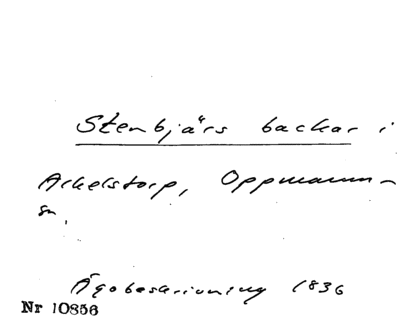 Stenbjärs backar i
Arkelstorp, Oppmanna-
sn.
Ägobeskrivning 1836
Nr 10856